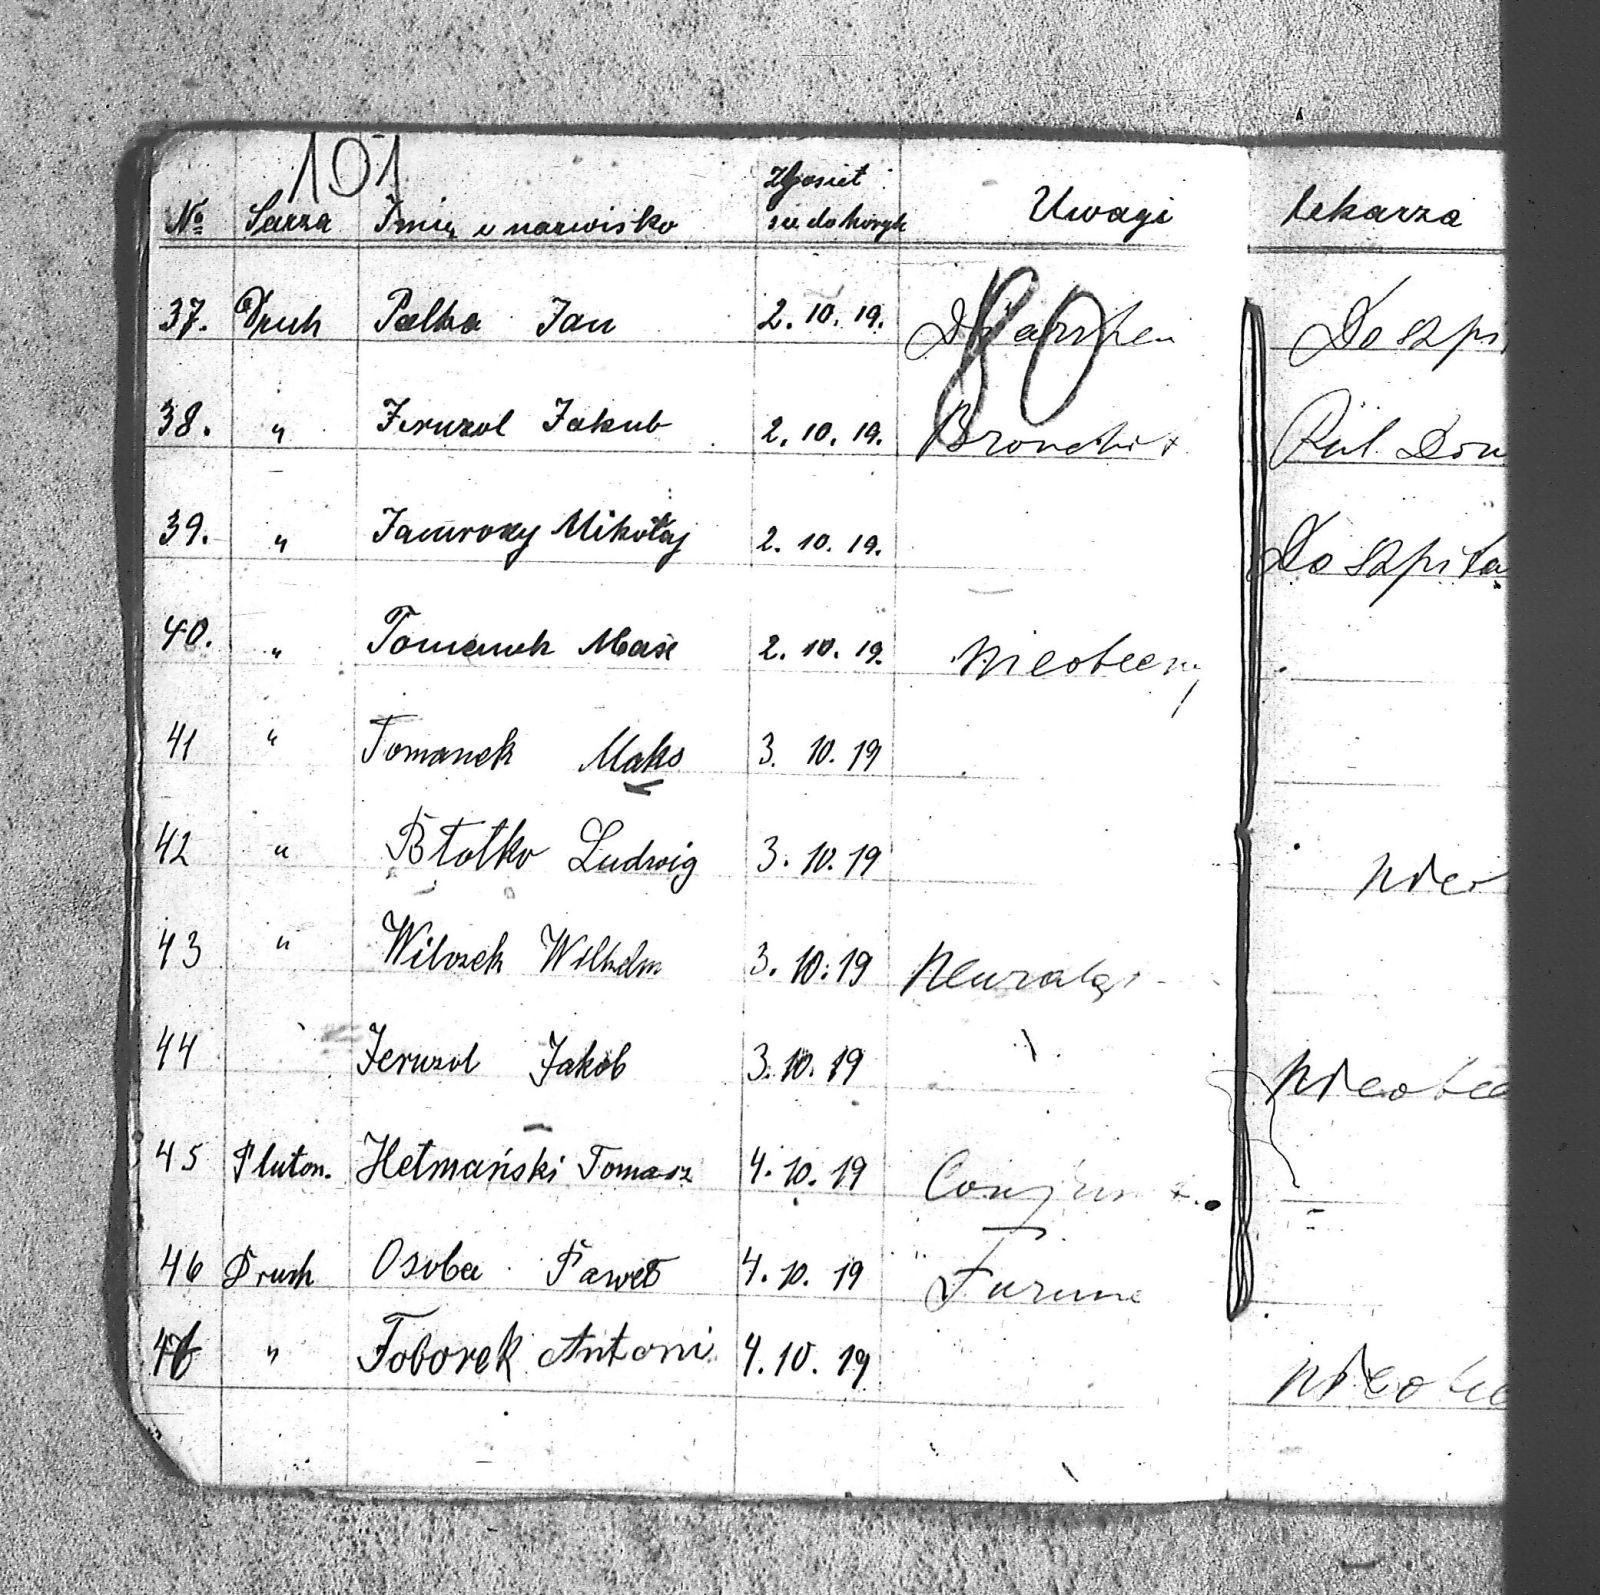 101
№ Sarza Imię i nazwisko Zgłosił się do horych Uwagi lekarza
80
37. Druh Palka Jan 2. 10. 19. Do szpi
38. " Jeruzol Jakub 2. 10. 19. Bronchit
39. " Jamrozy Mikołaj 2. 10. 19. Do szpita
40. " Tomanek Max 2. 10. 19. Nieobecny
41 " Tomanek Maks 3. 10. 19
42 " Ludwig 3. 10. 19 nieo
43 " Wilczek Wilhelm 3. 10. 19 Neuralgi
44 Jeruzol Jakób 3. 10. 19 nieobec
45 Pluton. Hetmański Tomasz 4. 10. 19
46 Druh Osoba Paweł 4. 10. 19
" Toborek Antoni 4. 10. 19 nieobec